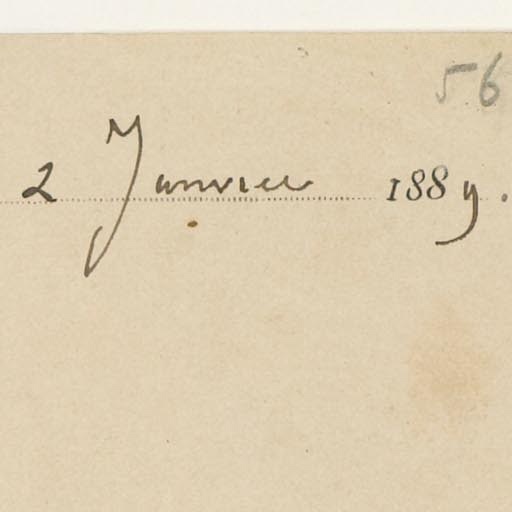 56
2 Janvier 1889.